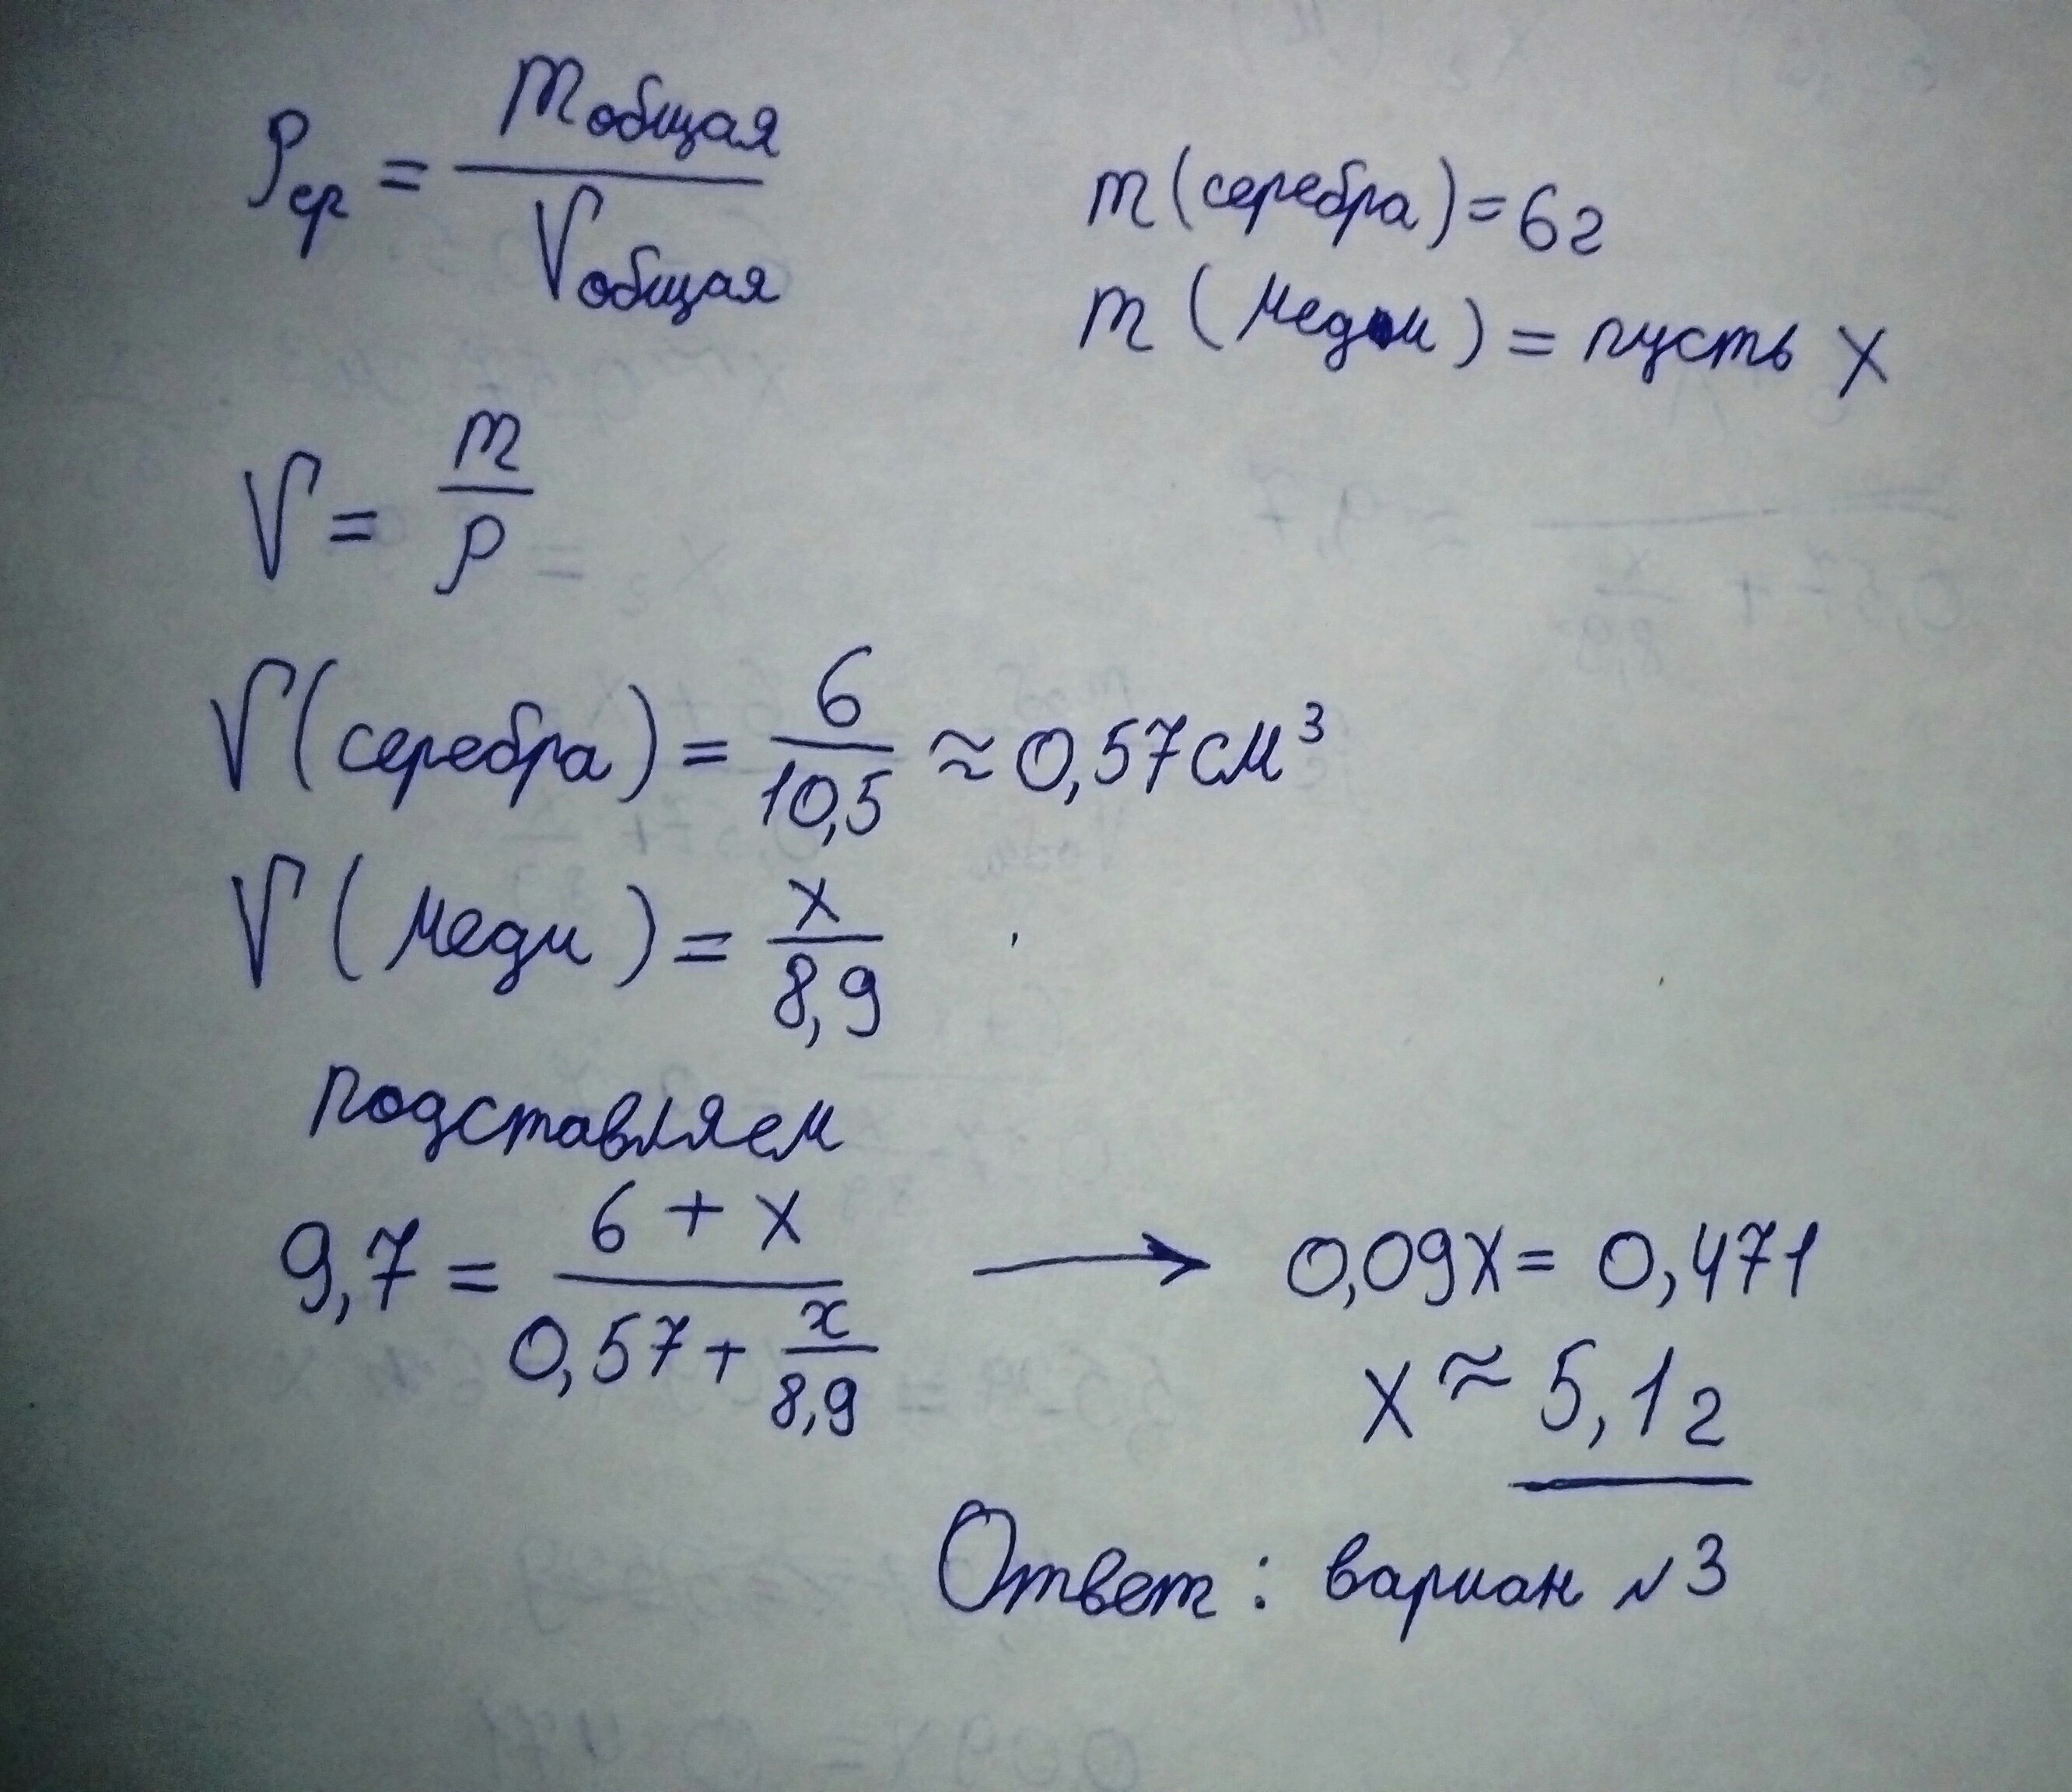 ρср = mобщая / Vобщая
m (серебра) = 6г
m (меди) = пусть x
V = m / ρ
V (серебра) = 6 / 10,5 ≈ 0,57 см³
V (меди) = x / 8,9
подставляем
9,7 = (6 + x) / (0,57 + x / 8,9) → 0,09x = 0,471
x ≈ 5,1г
Ответ: вариан №3